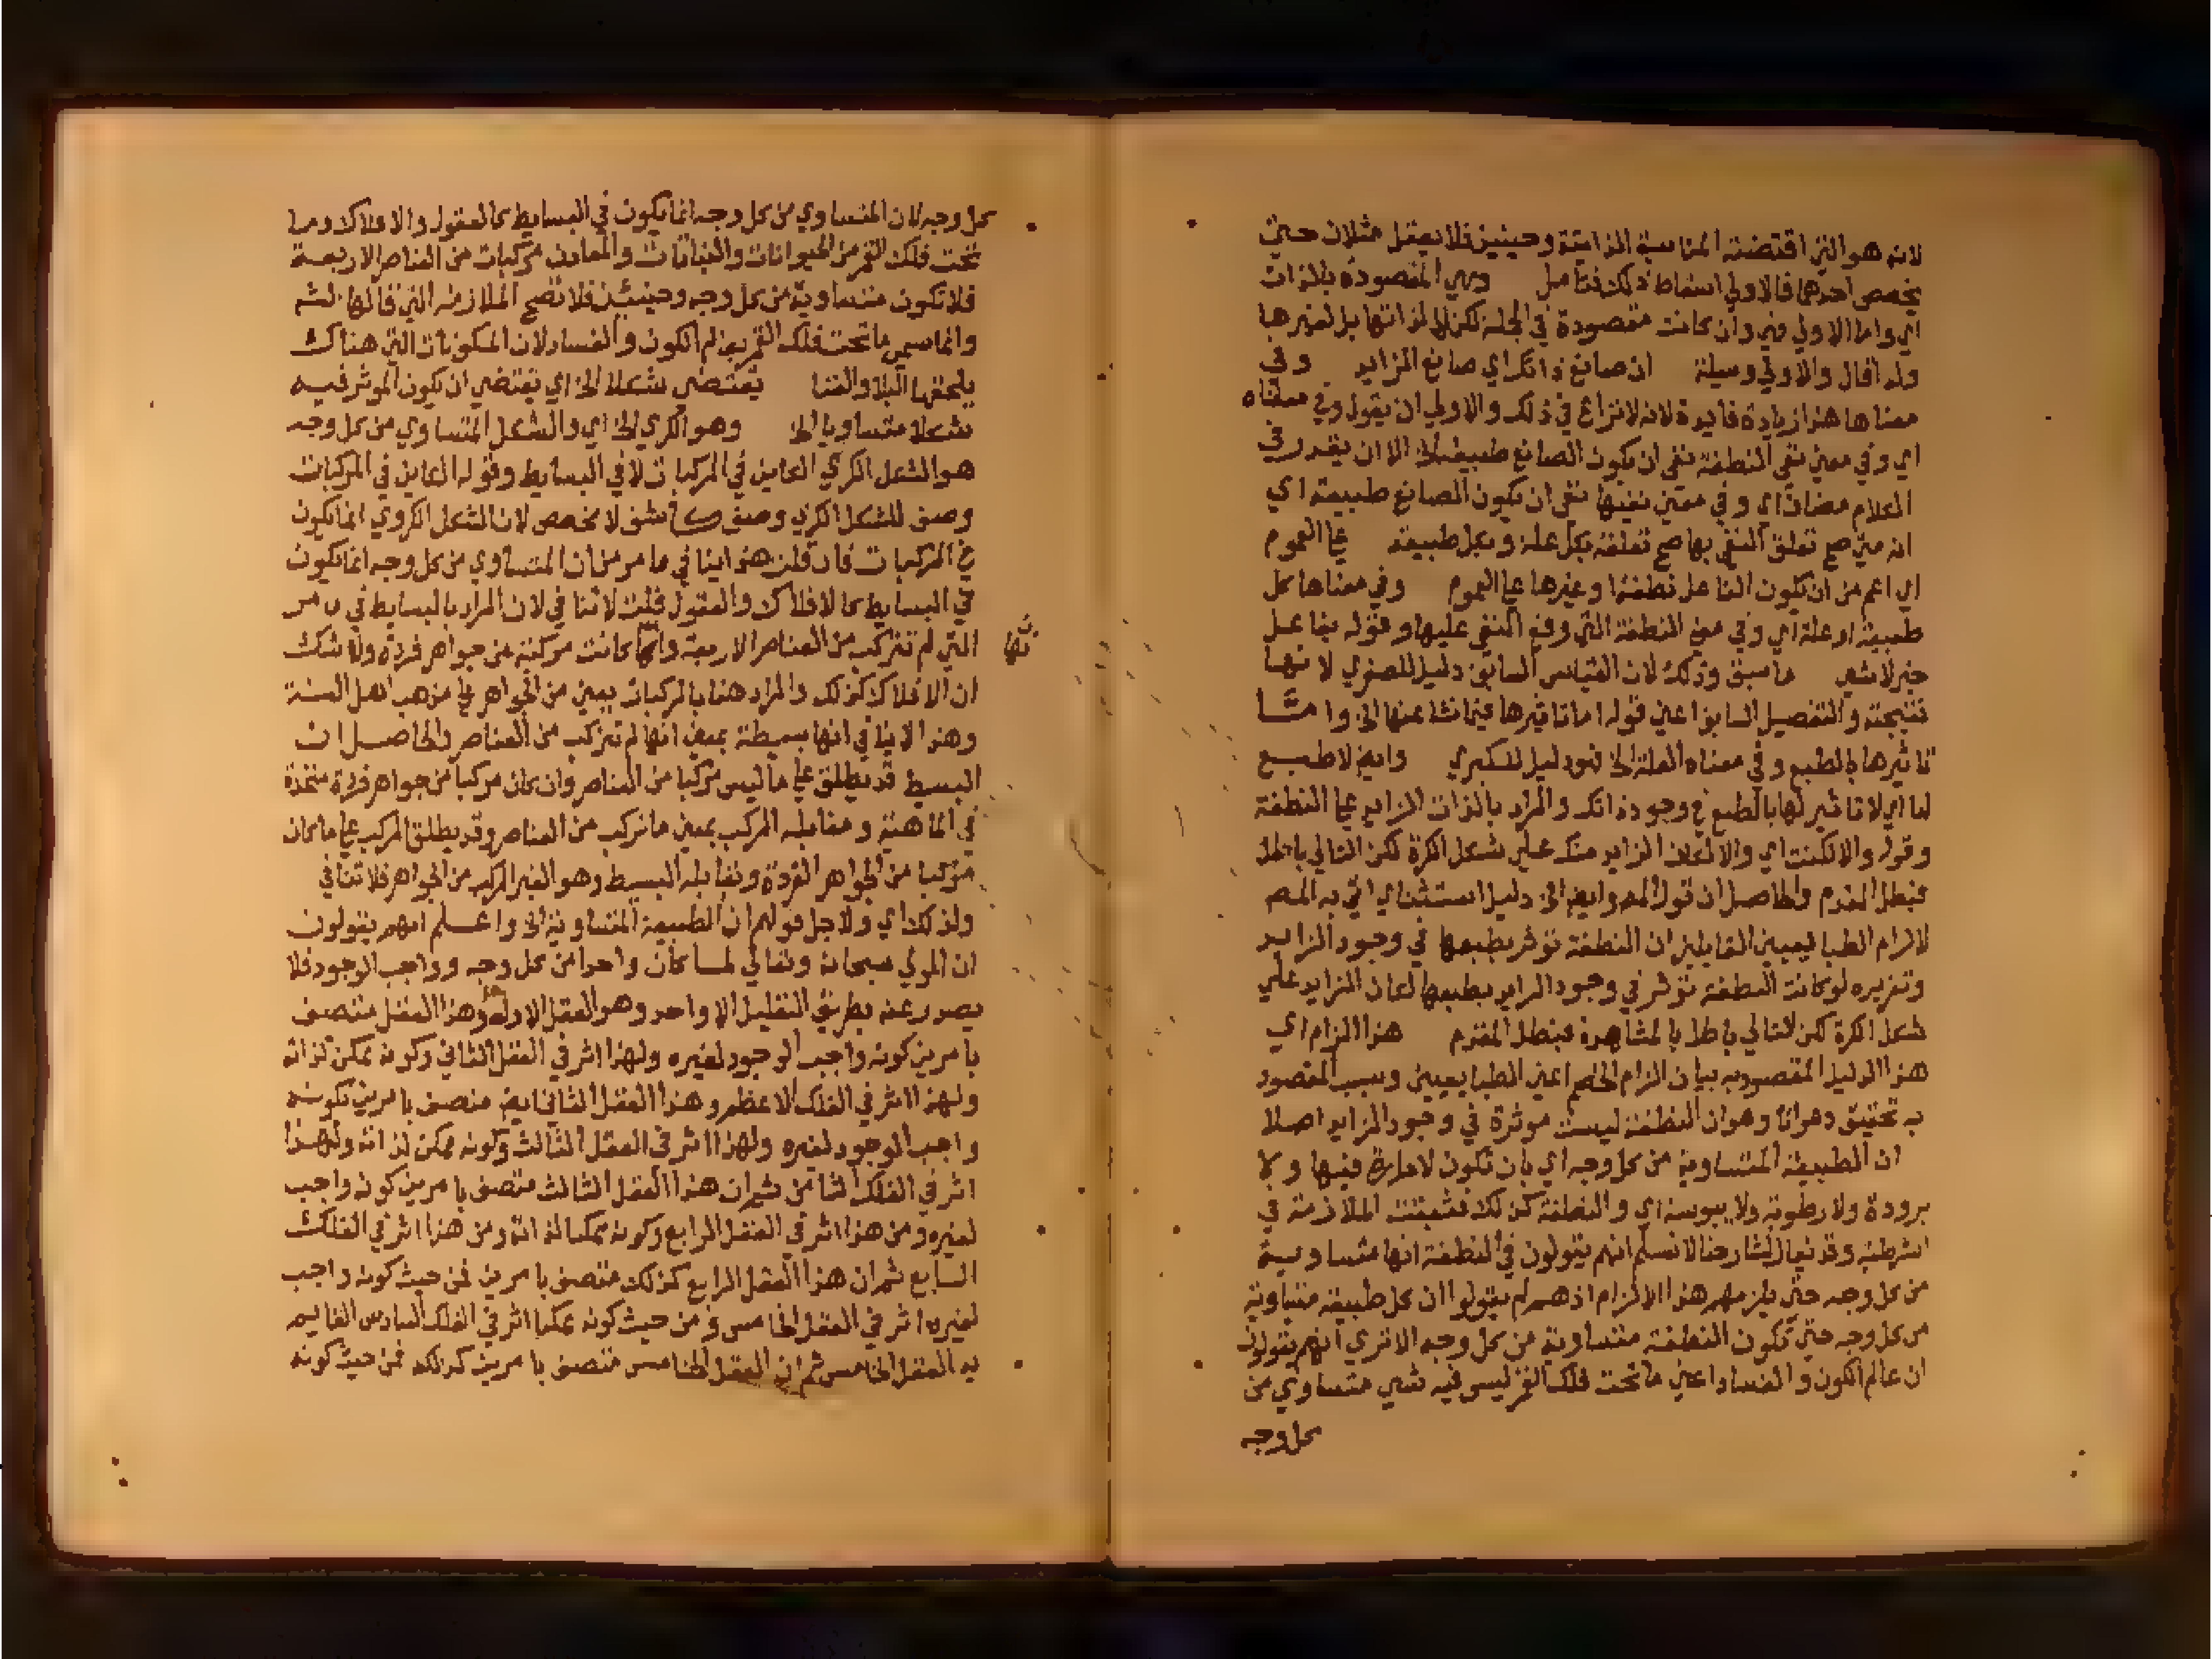 لانه هو الذي اقتضته المناسبة الذاتية وحينيذ فلا يعقل مثلان حتي
يخصص احدهما فالاولي اسقاط ذلك فتامل وهي المقصودة بالذات
اي واما الاولي فهي وان كانت مقصودة في الجملة لكن لا لذاتها بل لغيرها
ولذا قال والاولي وسيلة ان صانع ذاتك اي صانع الزايد وفي
معناها هذا زيادة فايدة لانه لا نزاع في ذلك والاولي ان يقول وفي معناه
اي وفي معني نفي النطفة نفي ان يكون الصانع طبيعة الخ الا ان يقدر في
الكلام مضاف اي وفي معني نفيها نفي ان يكون الصانع طبيعة اي
انه متي صح تعلق النفي بها صح تعلقه بكل علة وبكل طبيعة علي العموم
اي اعم من ان يكون الفاعل نطفة او غيرها علي العموم وفي معناها كل
طبيعة او علة اي وفي معني النطفة التي وقع النفي عليها وقوله بفاعل
خبر لا شي ما سبق وذلك لان القياس السابق دليل للصغري لانها
نتيجته والتفصيل السابق اعني قوله اما تاثيرها عنها الخ واما
تاثيرها بالطبع وفي معناه العلة الخ فهو دليل للكبري وايضا لا طبع
لها اي لا تاثير لها بالطبع في وجود ذاتك والمراد بالذات الزايد علي النطفة
وقوله والا لكنت اي والا لكان الزايد منك علي شكل الكرة لكن التالي باطل
فبطل المقدم والحاصل ان قول المص وايضا الخ دليل استثناي اتي به المص
لالزام الطبايعيين القايلين ان النطفة تؤثر بطبعها في وجود الزايد
وتقريره لو كانت النطفة تؤثر في وجود الزايد بطبعها لكان الزايد علي
شكل الكرة لكن التالي باطل بالمشاهدة فبطل المقدم هذا الزام اي
هذا الدليل المقصود به بيان الزام الخصم اعني الطبايعيين وليس المقصود
به تحقيق دعوانا وهو ان النطفة ليست موثرة في وجود الزايد اصلا
ان الطبيعة المتساوية من كل وجه اي بان تكون لا حرارة فيها ولا
برودة ولا رطوبة ولا يبوسة اي والنطفة كذلك فثبتت الملازمة في
الشرطية وقد يقال لشارحنا لا نسلم انهم يقولون في النطفة انها متساوية
من كل وجه حتي يلزمهم هذا الالزام اذ هم لم يقولوا ان كل طبيعة متساوية
من كل وجه حتي تكون النطفة متساوية من كل وجه الا تري انهم يقولون
ان عالم الكون والفساد اعني ما تحت فلك القمر ليس فيه شي متساوي من
كل وجه
كل وجه لان المتساوي من كل وجه انما يكون في البسايط كالعقول والافلاك وما
تحت فلك القمر من الحيوانات والنباتات والمعادن مركبات من العناصر الاربعة
فلا تكون متساوية من كل وجه وحينئذ فلا تصح الملازمة التي قالها الش
وانما سمي ما تحت فلك القمر بعالم الكون والفساد لان المكونات التي هناك
يلحقها البلا والفنا يقتضي شكلا الخ اي يقتضي ان يكون الموثر فيه
شكلا متساويا الخ وهو الكري الخ اي والشكل المتساوي من كل وجه
هو الشكل الكري الكاين في المركبات لا في البسايط وقوله الكاين في المركبات
وصف للشكل الكري وصف كاشف لا مخصص لان الشكل الكروي انما يكون
في المركبات فان قلت هذا ينافي ما مر من ان المتساوي من كل وجه انما يكون
في البسايط كالافلاك والعقول قلت لا تنافي لان المراد بالبسايط في ما مر
التي لم تتركب من العناصر الاربعة وانها كانت مركبة من جواهر فردة ولا شك
ان الافلاك كذلك والمراد هنا بالمركبات يعني من الجواهر علي مذهب اهل السنة
وهذا لا ينافي انها بسيطة بمعني انها لم تتركب من العناصر والحاصل ان
البسيط قد يطلق علي ما ليس مركبا من العناصر وان كان مركبا من جواهر فردة متحدة
في الماهية ومقابله المركب بمعني ما تركب من العناصر وقد يطلق المركب علي ما كان
مركبا من الجواهر الفردة ويقابله البسيط وهو الغير المركب من الجواهر فلا تنافي
ولذلك اي ولاجل قولهم ان الطبيعة المتساوية الخ واعلم انهم يقولون
ان المولي سبحانه وتعالي لما كان واحدا من كل وجه وواجب الوجود فلا
يصدر عنه بطريق التعليل الا واحد وهو العقل الاول وهذا العقل متصف
بامرين كونه واجب الوجود لغيره ولهذا اثر في العقل الثاني وكونه ممكن لذاته
ولهذا اثر في الفلك الاعظم وهذا العقل الثاني ايضا متصف بامرين كونه
واجب الوجود لغيره ولهذا اثر في العقل الثالث وكونه ممكن لذاته ولهذا
اثر في الفلك الثامن ثم ان هذا العقل الثالث متصف بامرين كونه واجب
لغيره ومن هذا اثر في العقل الرابع وكونه ممكنا لذاته ومن هذا اثر في الفلك
السابع ثم ان هذا العقل الرابع كذلك متصف بامرين فمن حيث كونه واجب
لغيره اثر في العقل الخامس ومن حيث كونه ممكنا اثر في الفلك السادس القايم
به العقل الخامس ثم ان العقل الخامس متصف بامرين كذلك فمن حيث كونه